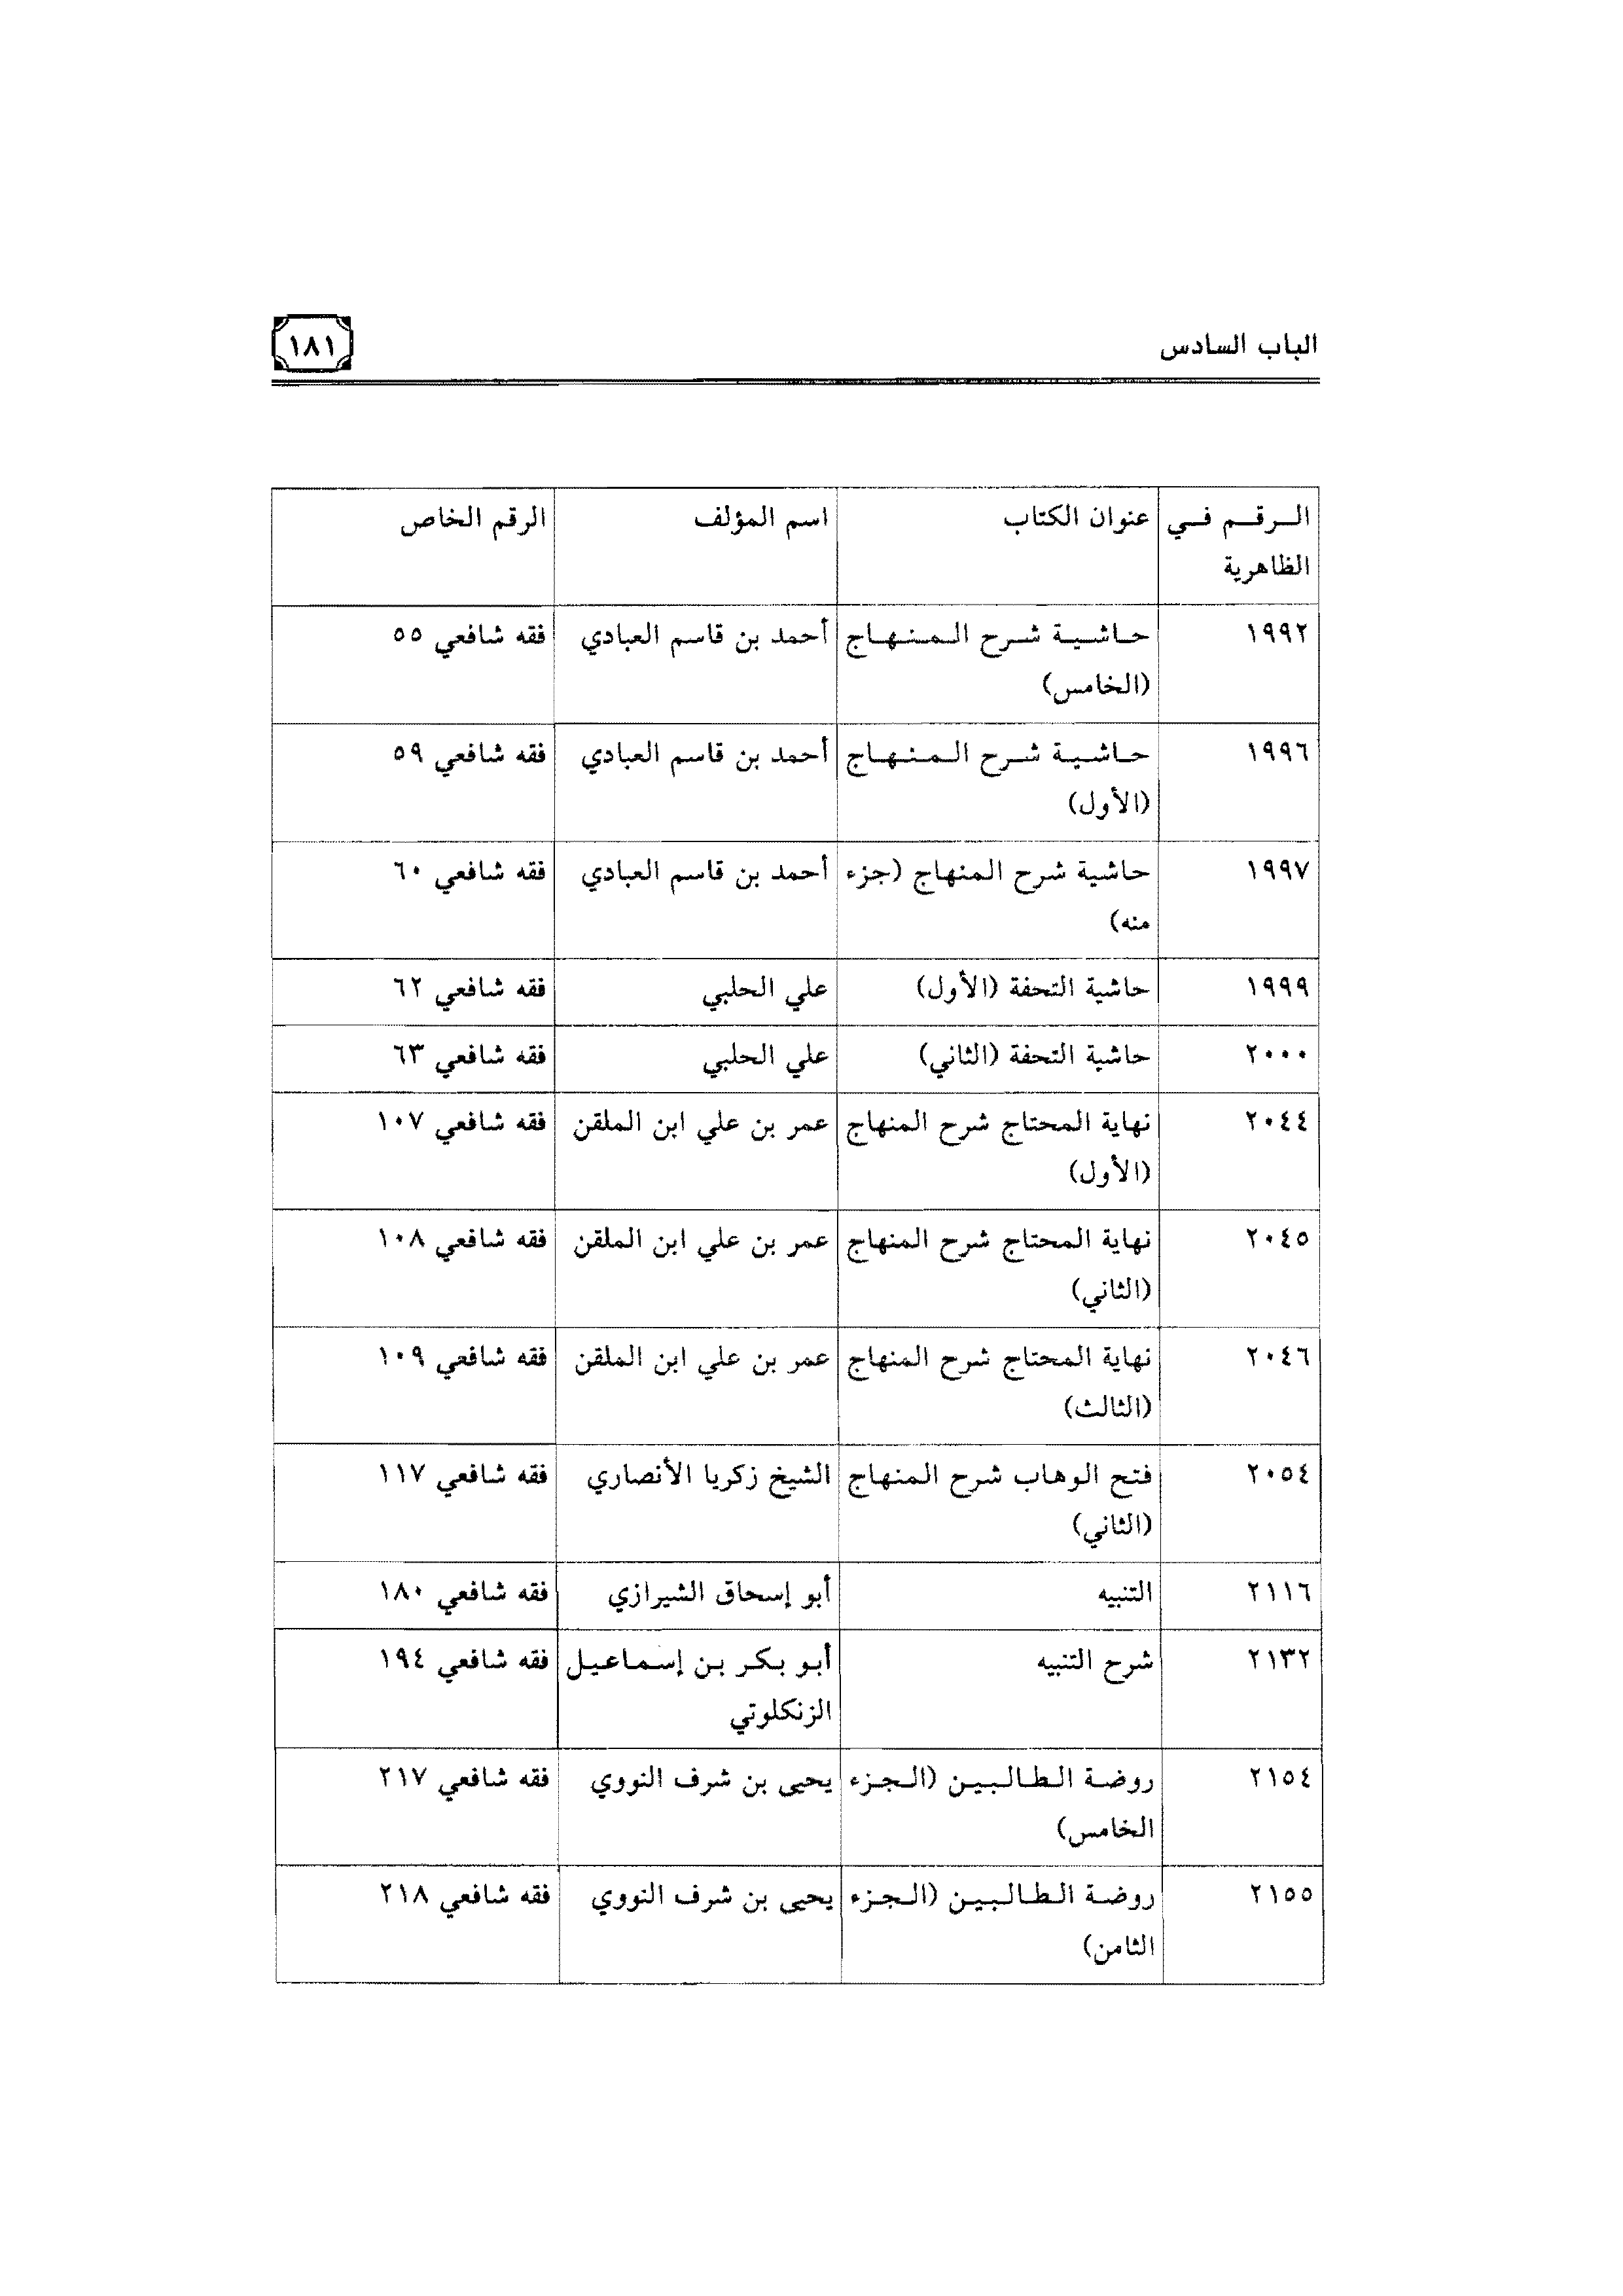 الباب السادس
١٨١
الرقم في عنوان الكتاب اسم المؤلف الرقم الخاص
الظاهرية
١٩٩٢ حاشية شرح المنهاج أحمد بن قاسم العبادي فقه شافعي ٥٥
(الخامس)
١٩٩٦ حاشية شرح المنهاج أحمد بن قاسم العبادي فقه شافعي ٥٩
(الأول)
١٩٩٧ حاشية شرح المنهاج (جزء أحمد بن قاسم العبادي فقه شافعي ٦٠
منه)
١٩٩٩ حاشية التحفة (الأول) علي الحلبي فقه شافعي ٦٢
٢٠٠٠ حاشية التحفة (الثاني) علي الحلبي فقه شافعي ٦٣
٢٠٤٤ نهاية المحتاج شرح المنهاج عمر بن علي ابن الملقن فقه شافعي ١٠٧
(الأول)
٢٠٤٥ نهاية المحتاج شرح المنهاج عمر بن علي ابن الملقن فقه شافعي ١٠٨
(الثاني)
٢٠٤٦ نهاية المحتاج شرح المنهاج عمر بن علي ابن الملقن فقه شافعي ١٠٩
(الثالث)
٢٠٥٤ فتح الوهاب شرح المنهاج الشيخ زكريا الأنصاري فقه شافعي ١١٧
(الثاني)
٢١١٦ التنبيه أبو إسحاق الشيرازي فقه شافعي ١٨٠
٢١٣٢ شرح التنبيه أبو بكر بن إسماعيل فقه شافعي ١٩٤
الزنكلوتي
٢١٥٤ روضة الطالبين (الجزء يحيى بن شرف النووي فقه شافعي ٢١٧
الخامس)
٢١٥٥ روضة الطالبين (الجزء يحيى بن شرف النووي فقه شافعي ٢١٨
الثامن)